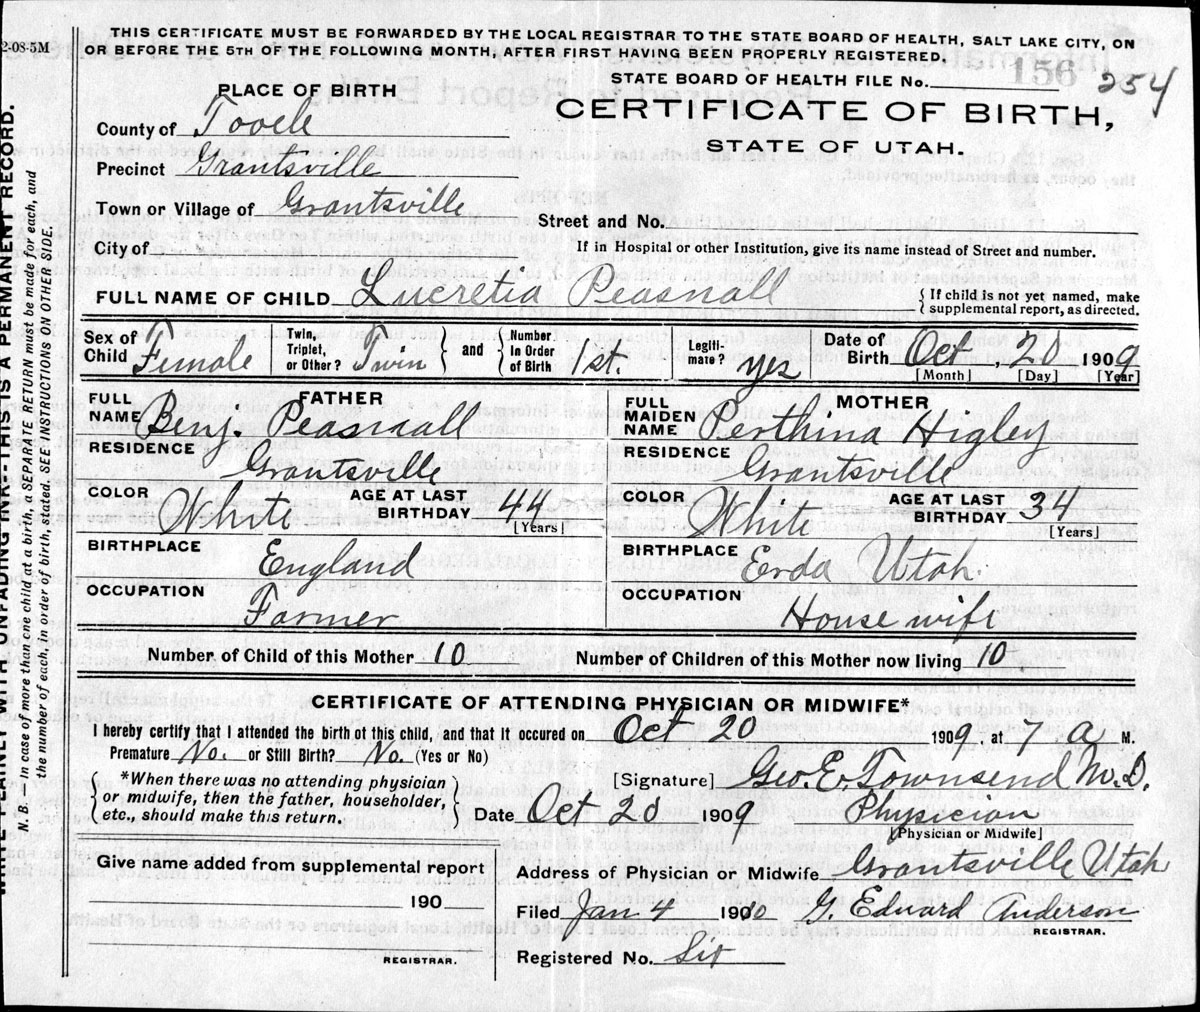 2-08-5M
THIS CERTIFICATE MUST BE FORWARDED BY THE LOCAL REGISTRAR TO THE STATE BOARD OF HEALTH, SALT LAKE CITY, ON
OR BEFORE THE 5TH OF THE FOLLOWING MONTH, AFTER FIRST HAVING BEEN PROPERLY REGISTERED.
STATE BOARD OF HEALTH FILE No. 156 254
PLACE OF BIRTH
CERTIFICATE OF BIRTH,
STATE OF UTAH.
County of Tooele
Precinct Grantsville
Town or Village of Grantsville
Street and No.
City of
If in Hospital or other Institution, give its name instead of Street and number.
FULL NAME OF CHILD Lucretia Peasnall
{ If child is not yet named, make
supplemental report, as directed.
Sex of Child Female Twin, Triplet, or Other? Twin } and { Number In Order of Birth 1st. Legiti-mate? yes Date of Birth Oct, 2 1909
[Month] [Day] [Year]
FATHER
FULL NAME Benj. Peasnall
RESIDENCE Grantsville
COLOR White AGE AT LAST BIRTHDAY 44
[Years]
BIRTHPLACE England
OCCUPATION Farmer
MOTHER
FULL MAIDEN NAME Perthina Higley
RESIDENCE Grantsville
COLOR White AGE AT LAST BIRTHDAY 34
[Years]
BIRTHPLACE Erda Utah.
OCCUPATION House wife
Number of Child of this Mother 10 Number of Children of this Mother now living 10
CERTIFICATE OF ATTENDING PHYSICIAN OR MIDWIFE*
I hereby certify that I attended the birth of this child, and that it occured on Oct 20 1909 at 7 a M.
Premature No. or Still Birth? No. (Yes or No)
{ *When there was no attending physician
or midwife, then the father, householder,
etc., should make this return. }
[Signature] Geo. E. Townsend M.D.
Date Oct 20 1909 Physician
[Physician or Midwife]
Give name added from supplemental report
190
REGISTRAR.
Address of Physician or Midwife Grantsville Utah
Filed Jan 4 1910 G. Edward Anderson
REGISTRAR.
Registered No. Six
WRITE PLAINLY WITH UNFADING INK--THIS IS A PERMANENT RECORD.
N. B. — In case of more than one child at a birth, a SEPARATE RETURN must be made for each, and
the number of each, in order of birth, stated. SEE INSTRUCTIONS ON OTHER SIDE.